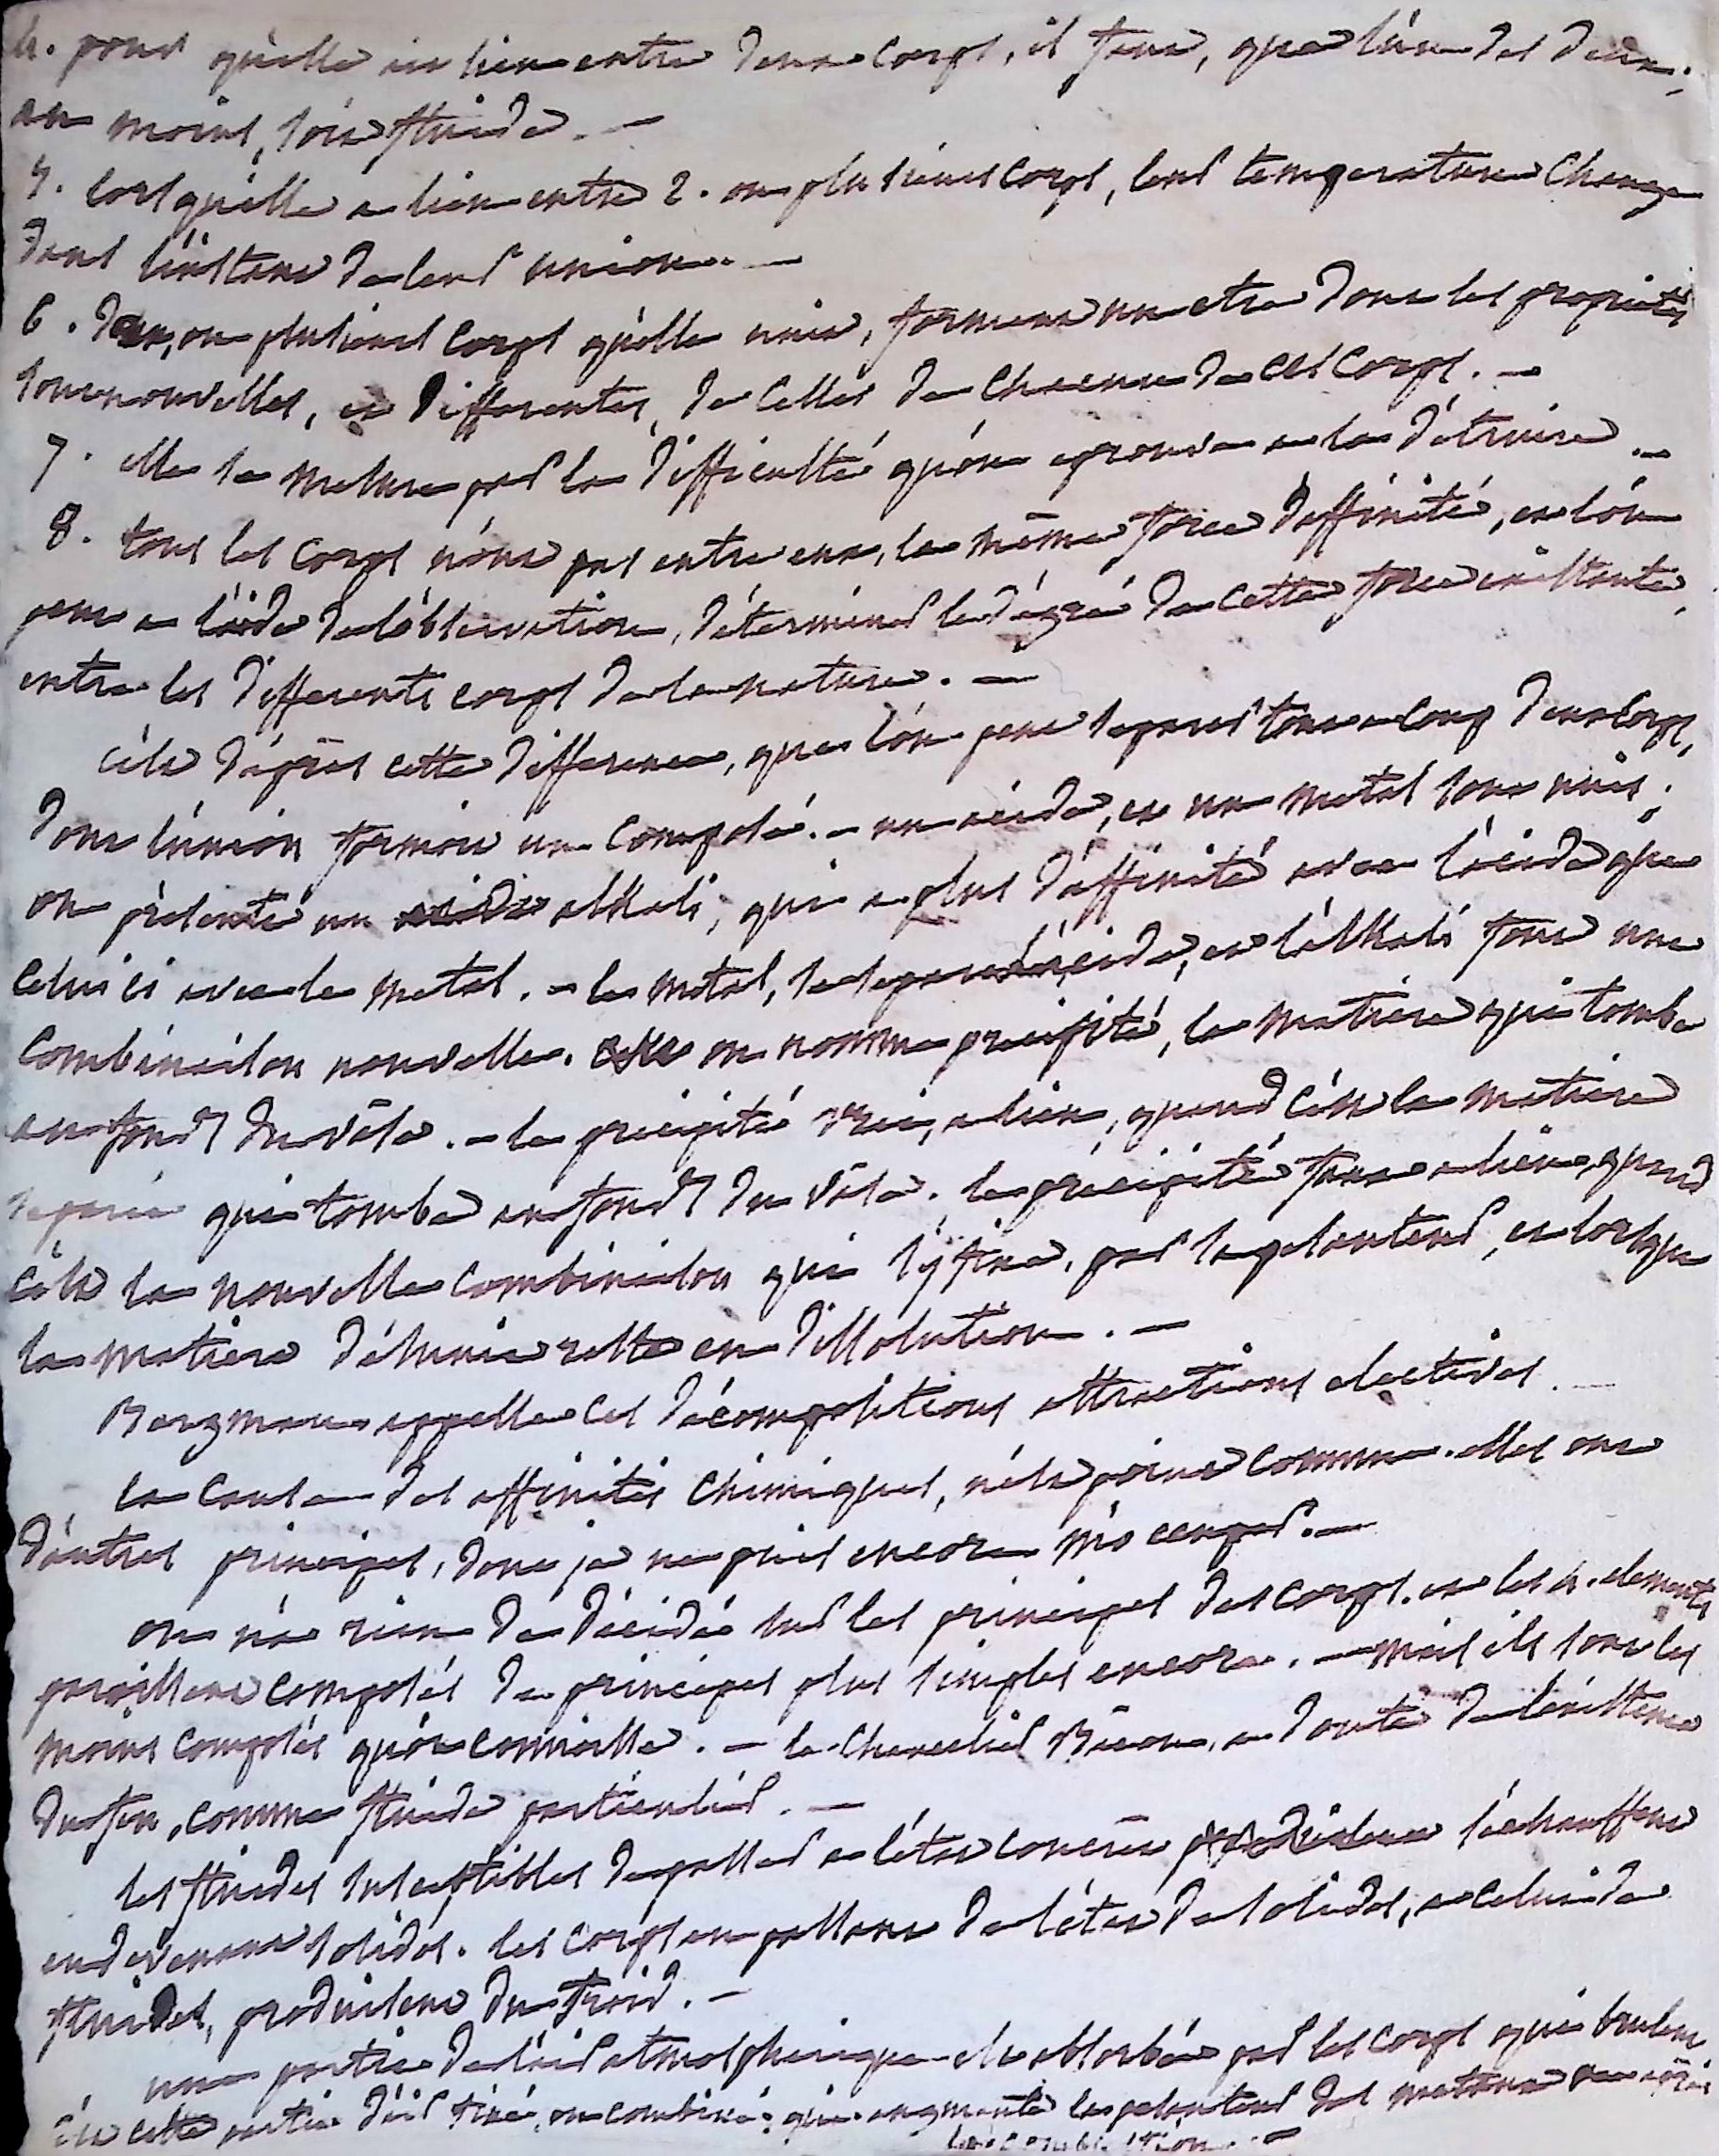 4. pour qu'elle ait lieu entre deux corps, il faut, que l'un des deux,
au moins, soit fluide. —
5. lorsqu'elle a lieu entre 2. ou plusieurs corps, leur temperature change
dans l'instant de leur union. —
6. deux, ou plusieurs corps qu'elle unit, forment un etre dont les proprietés
sont nouvelles, et differentes, de celles de chacun de ces corps. —
7. elle se mesure par la difficulté qu'on eprouve a la détruire. —
8. tous les corps n'ont pas entre eux, la même force d'affinité, et l'on
peut a l'aide de l'observation, déterminer le dégré de cette force existante,
entre les differents corps de la nature. —
c'est d'après cette difference, que l'on peut separer tout a coup deux corps,
dont l'union formoit un composé. — un acide, et un metal sont unis;
on présente un alkali, qui a plus d'affinité avec l'acide que
celui ci avec le metal. — le metal, se separe de l'acide, et l'alkali font une
combinaison nouvelle. on nomme precipité, la matiere qui tombe
au fond du vâse. — le precipité vrai, a lieu, quand c'est la matiere
separée qui tombe au fond du vâse. le précipité faux a lieu, quand
c'est la nouvelle combinaison qui s'y fixe, par sa pesanteur, et lorsque
la matiere désunie reste en dissolution. —
Bergman appelle ces décompositions attractions electives. —
la cause des affinités chimiques, n'est point connue. elles ont
d'autres principes, dont je ne puis encore m'occuper. —
on n'a rien de décidé sur les principes des corps. et les 4. elements
paroissent composés de principes plus simples encore. — mais ils sont les
moins composés qu'on connoisse. — le chancelier Bâcon, a douté de l'existence
du feu, comme fluide particulier. —
les fluides susceptibles de passer a l'état concret s'echauffent
en devenant solides. les corps en passant de l'état de solides, a celui de
fluides, produisent du froid. —
une partie de l'air atmospherique est absorbée par les corps qui brulent
c'est cette partie d'air fixé, ou combiné, qui augmente la pesanteur des metaux aprés
la combustion. —